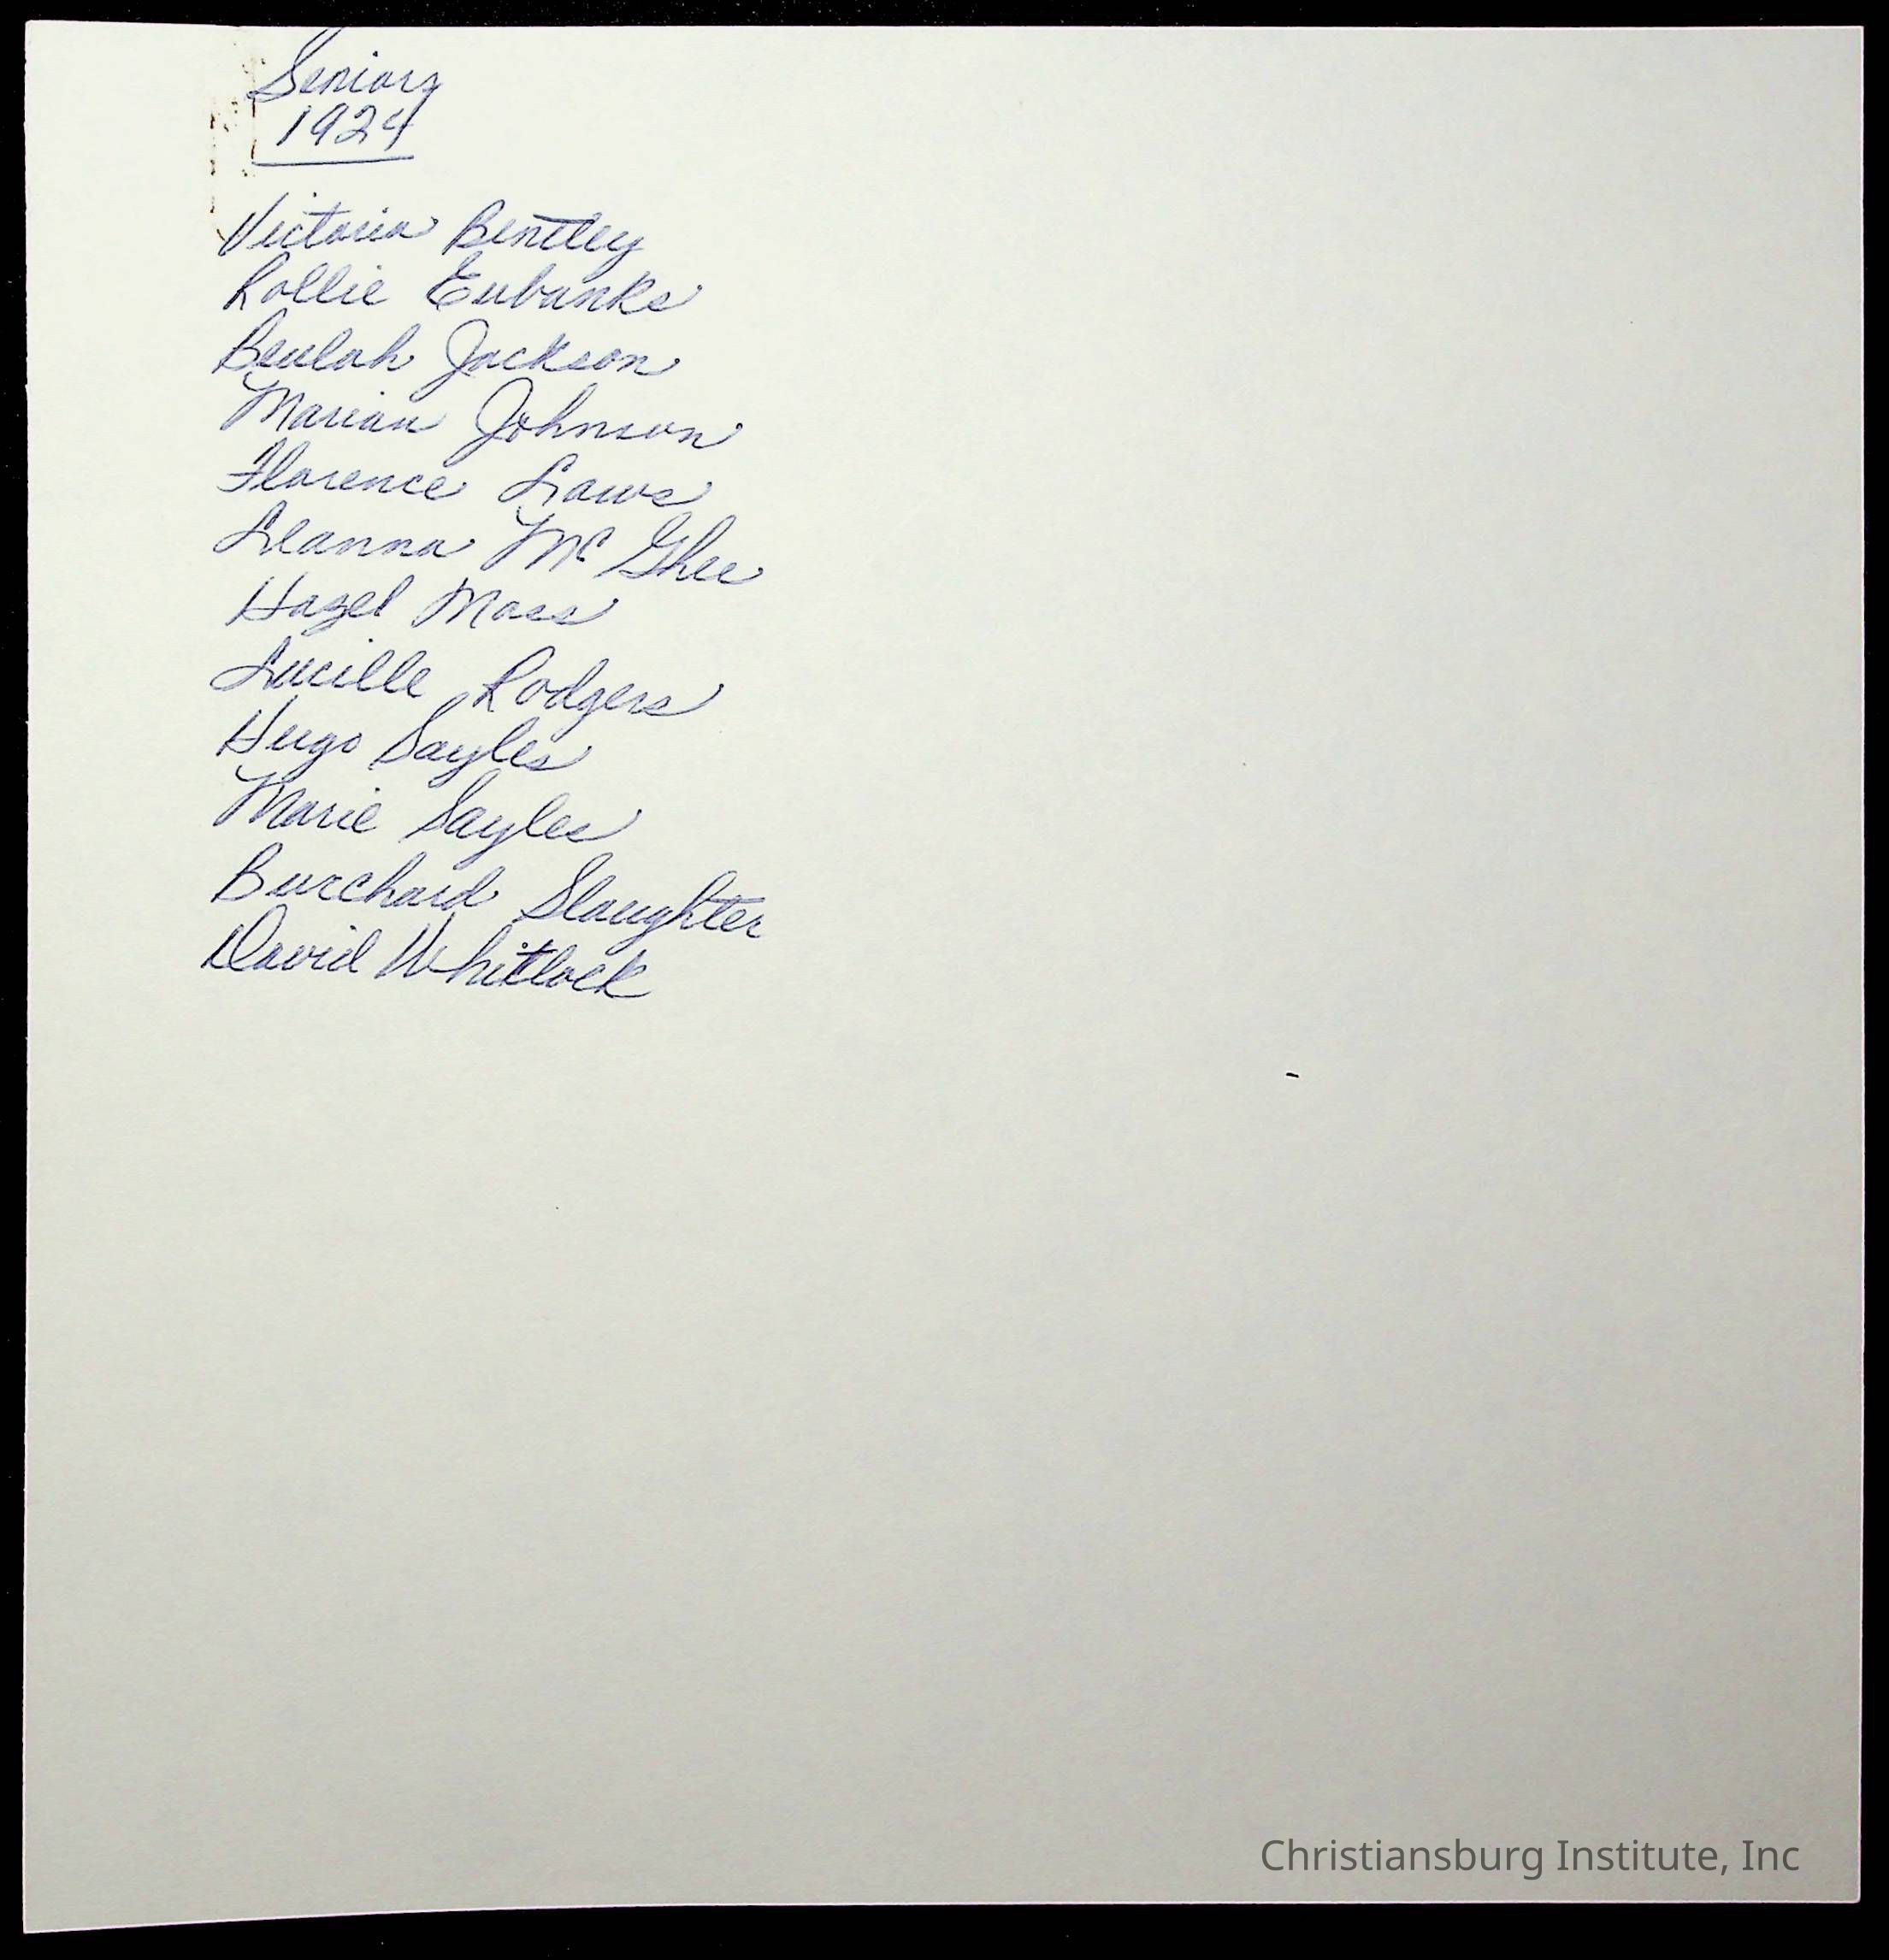 Seniors
1924
Victoria Bentley
Rollie Eubanks
Beulah Jackson
Marian Johnson
Florence Laws
Leanna Mc Ghee
Hazel Moss
Lucille Rodgers
Hugo Sayles
Marie Sayles
Burchard Slaughter
David Whitlock
Christiansburg Institute, Inc